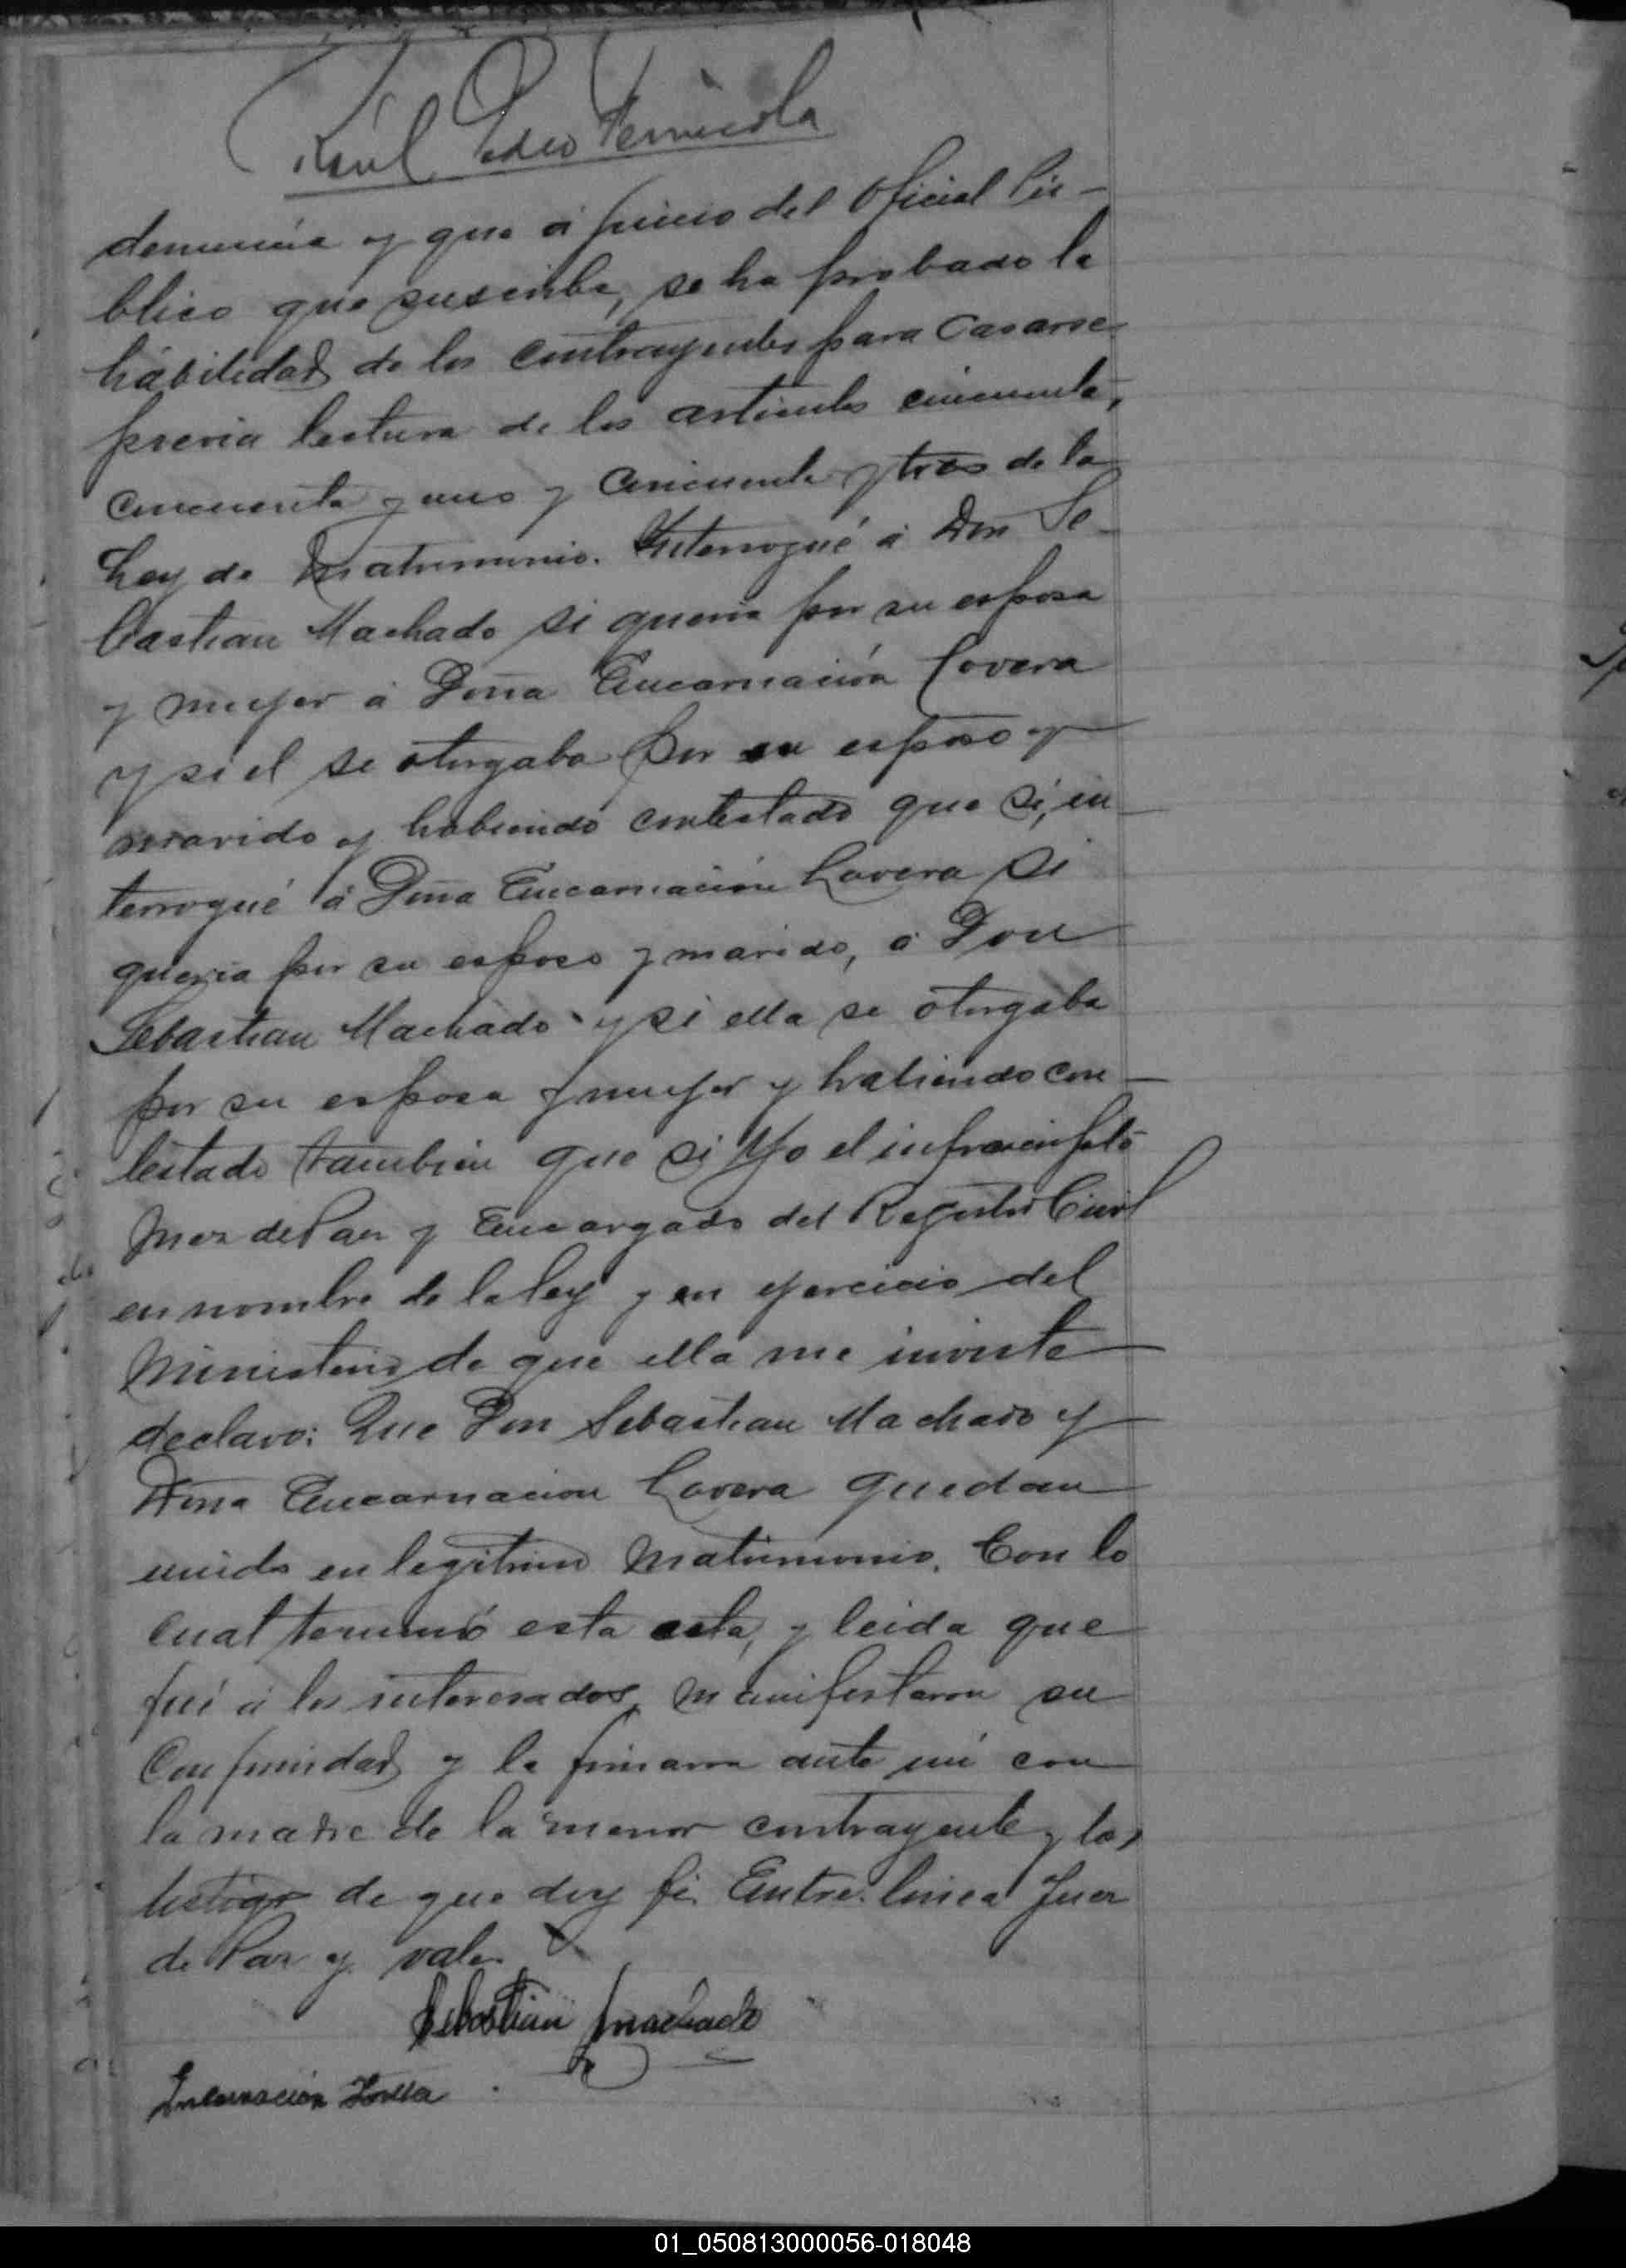 Raul Pedro
denuncia y que á juicio del Oficial Pú-
blico que suscribe, se ha probado la
habilidad de los contrayentes para casarse
previa lectura de los articulos cincuenta,
cincuenta y uno y cincuenta y tres de la
Ley de Matrimonio. Interrogué á Don Se-
bastian Machado si queria por su esposa
y mujer á Doña Encarnación Lovera
y si el se otorgaba por su esposo y
marido y habiendo contestado que si, in-
terrogué á Doña Encarnación Lovera si
queria por su esposo y marido, á Don
Sebastian Machado y si ella se otorgaba
por su esposa y mujer y habiendo con-
testado tambien que si Yo el infrascripto
Juez de Paz y Encargado del Registro Civil
en nombre de la ley y en ejercicio del
Ministerio de que ella me inviste
declaro: Que Don Sebastian Machado y
Doña Encarnacion Lovera quedan
unidos en legitimo Matrimonio. Con lo
cual terminó esta acta, y leida que
fué á los interesados, manifestaron su
conformidad y la firmaron ante mi con
la madre de la menor contrayente y los
testigos de que doy fé. Entre linea Juez
de Paz y vale.
Sebastian Machado
Encarnación Lovera
01_050813000056-018048